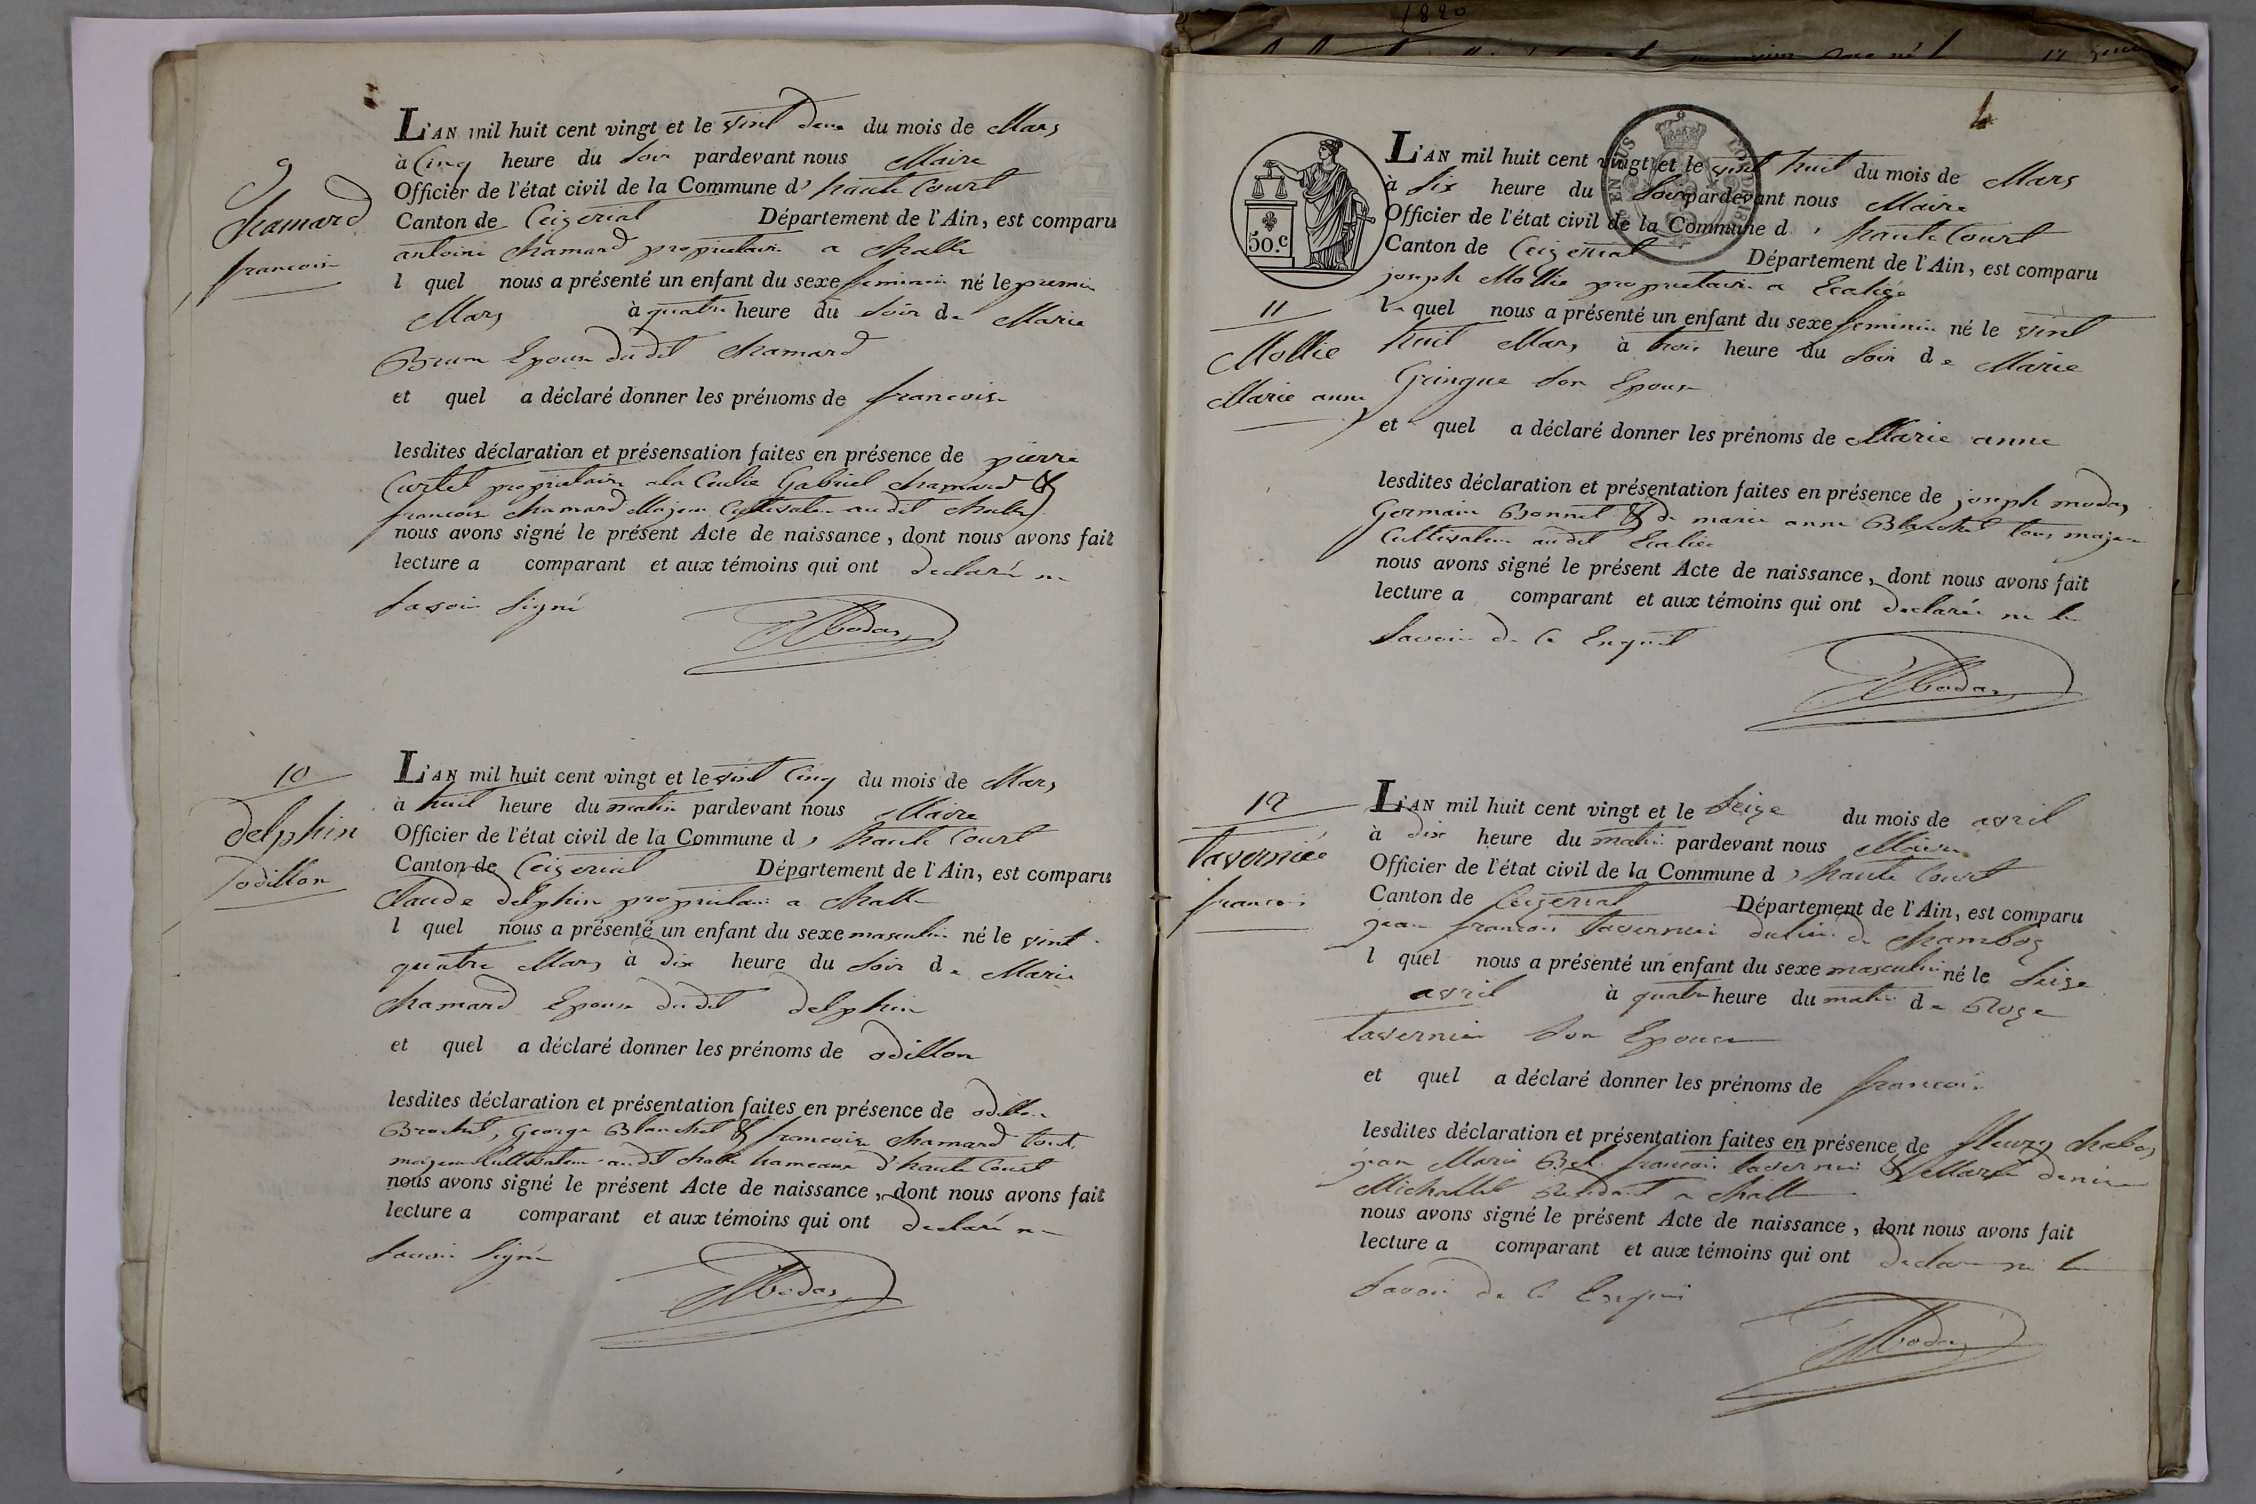 9
Chamard
francoise
L'AN mil huit cent vingt et le vint deux du mois de Mars
à Cinq heure du Soir pardevant nous Maire
Officier de l'état civil de la Commune d' haute Court
Canton de Ceizerial Département de l'Ain, est comparu
antoine Chamard propriétaire a Challe
l quel nous a présenté un enfant du sexe feminin né le premier
Mars à quatre heure du Soir de Marie
Brun Epouse du dit Chamard
et quel a déclaré donner les prénoms de francoise
lesdites déclaration et présensation faites en présence de pierre
Cartet propriétaire a la Gabriel Chamard &
francois Chamard Majeur Cultivateur au dit Challe
nous avons signé le présent Acte de naissance, dont nous avons fait
lecture a comparant et aux témoins qui ont declaré ne
Savoir Signé
10
delphin
odillon
L'AN mil huit cent vingt et le vint Cinq du mois de Mars
à huit heure du matin pardevant nous Maire
Officier de l'état civil de la Commune d' haute Court
Canton de Ceizerial Département de l'Ain, est comparu
Claude delphin propriétaire a Challe
l quel nous a présenté un enfant du sexe masculin né le vint
quatre Mars à dix heure du Soir de Marie
Chamard Epouse du dit delphin
et quel a déclaré donner les prénoms de odillon
lesdites déclaration et présentation faites en présence de odillon
Brochet, George Blanchet & francoise Chamard tout
majeur Cultivateur au dit Challe hameaux d'haute Court
nous avons signé le présent Acte de naissance, dont nous avons fait
lecture a comparant et aux témoins qui ont declaré ne
Savoir Signé
1820
50.c
L'AN mil huit cent vingt et le vint huit du mois de Mars
à Six heure du Soir pardevant nous Maire
Officier de l'état civil de la Commune d' haute Court
Canton de Ceizerial Département de l'Ain, est comparu
joseph Mollie propriétaire a
11
Mollie
Marie anne
le quel nous a présenté un enfant du sexe feminin né le vint
huit Mars à trois heure du Soir de Marie
Gringue Son Epouse
et quel a déclaré donner les prénoms de Marie anne
lesdites déclaration et présentation faites en présence de joseph moday
Germain Bonnet & de marie anne Blanchet tous majeur
Cultivateur au dit
nous avons signé le présent Acte de naissance, dont nous avons fait
lecture a comparant et aux témoins qui ont declaré ne le
Savoir de Ce Enquit
12
Tavernié
francois
L'AN mil huit cent vingt et le Seize du mois de avril
à dix heure du matin pardevant nous Maire
Officier de l'état civil de la Commune d' haute Court
Canton de Ceizerial Département de l'Ain, est comparu
jean francois Tavernier du lieu de Chambos
l quel nous a présenté un enfant du sexe masculin né le Seize
avril à quatre heure du matin de Roze
Tavernier Son Epouse
et quel a déclaré donner les prénoms de francois
lesdites déclaration et présentation faites en présence de fleury
jean Marie francois Tavernier & Marie
Michallet a Challe
nous avons signé le présent Acte de naissance, dont nous avons fait
lecture a comparant et aux témoins qui ont declaré ne le
Savoir de Ce Enquit